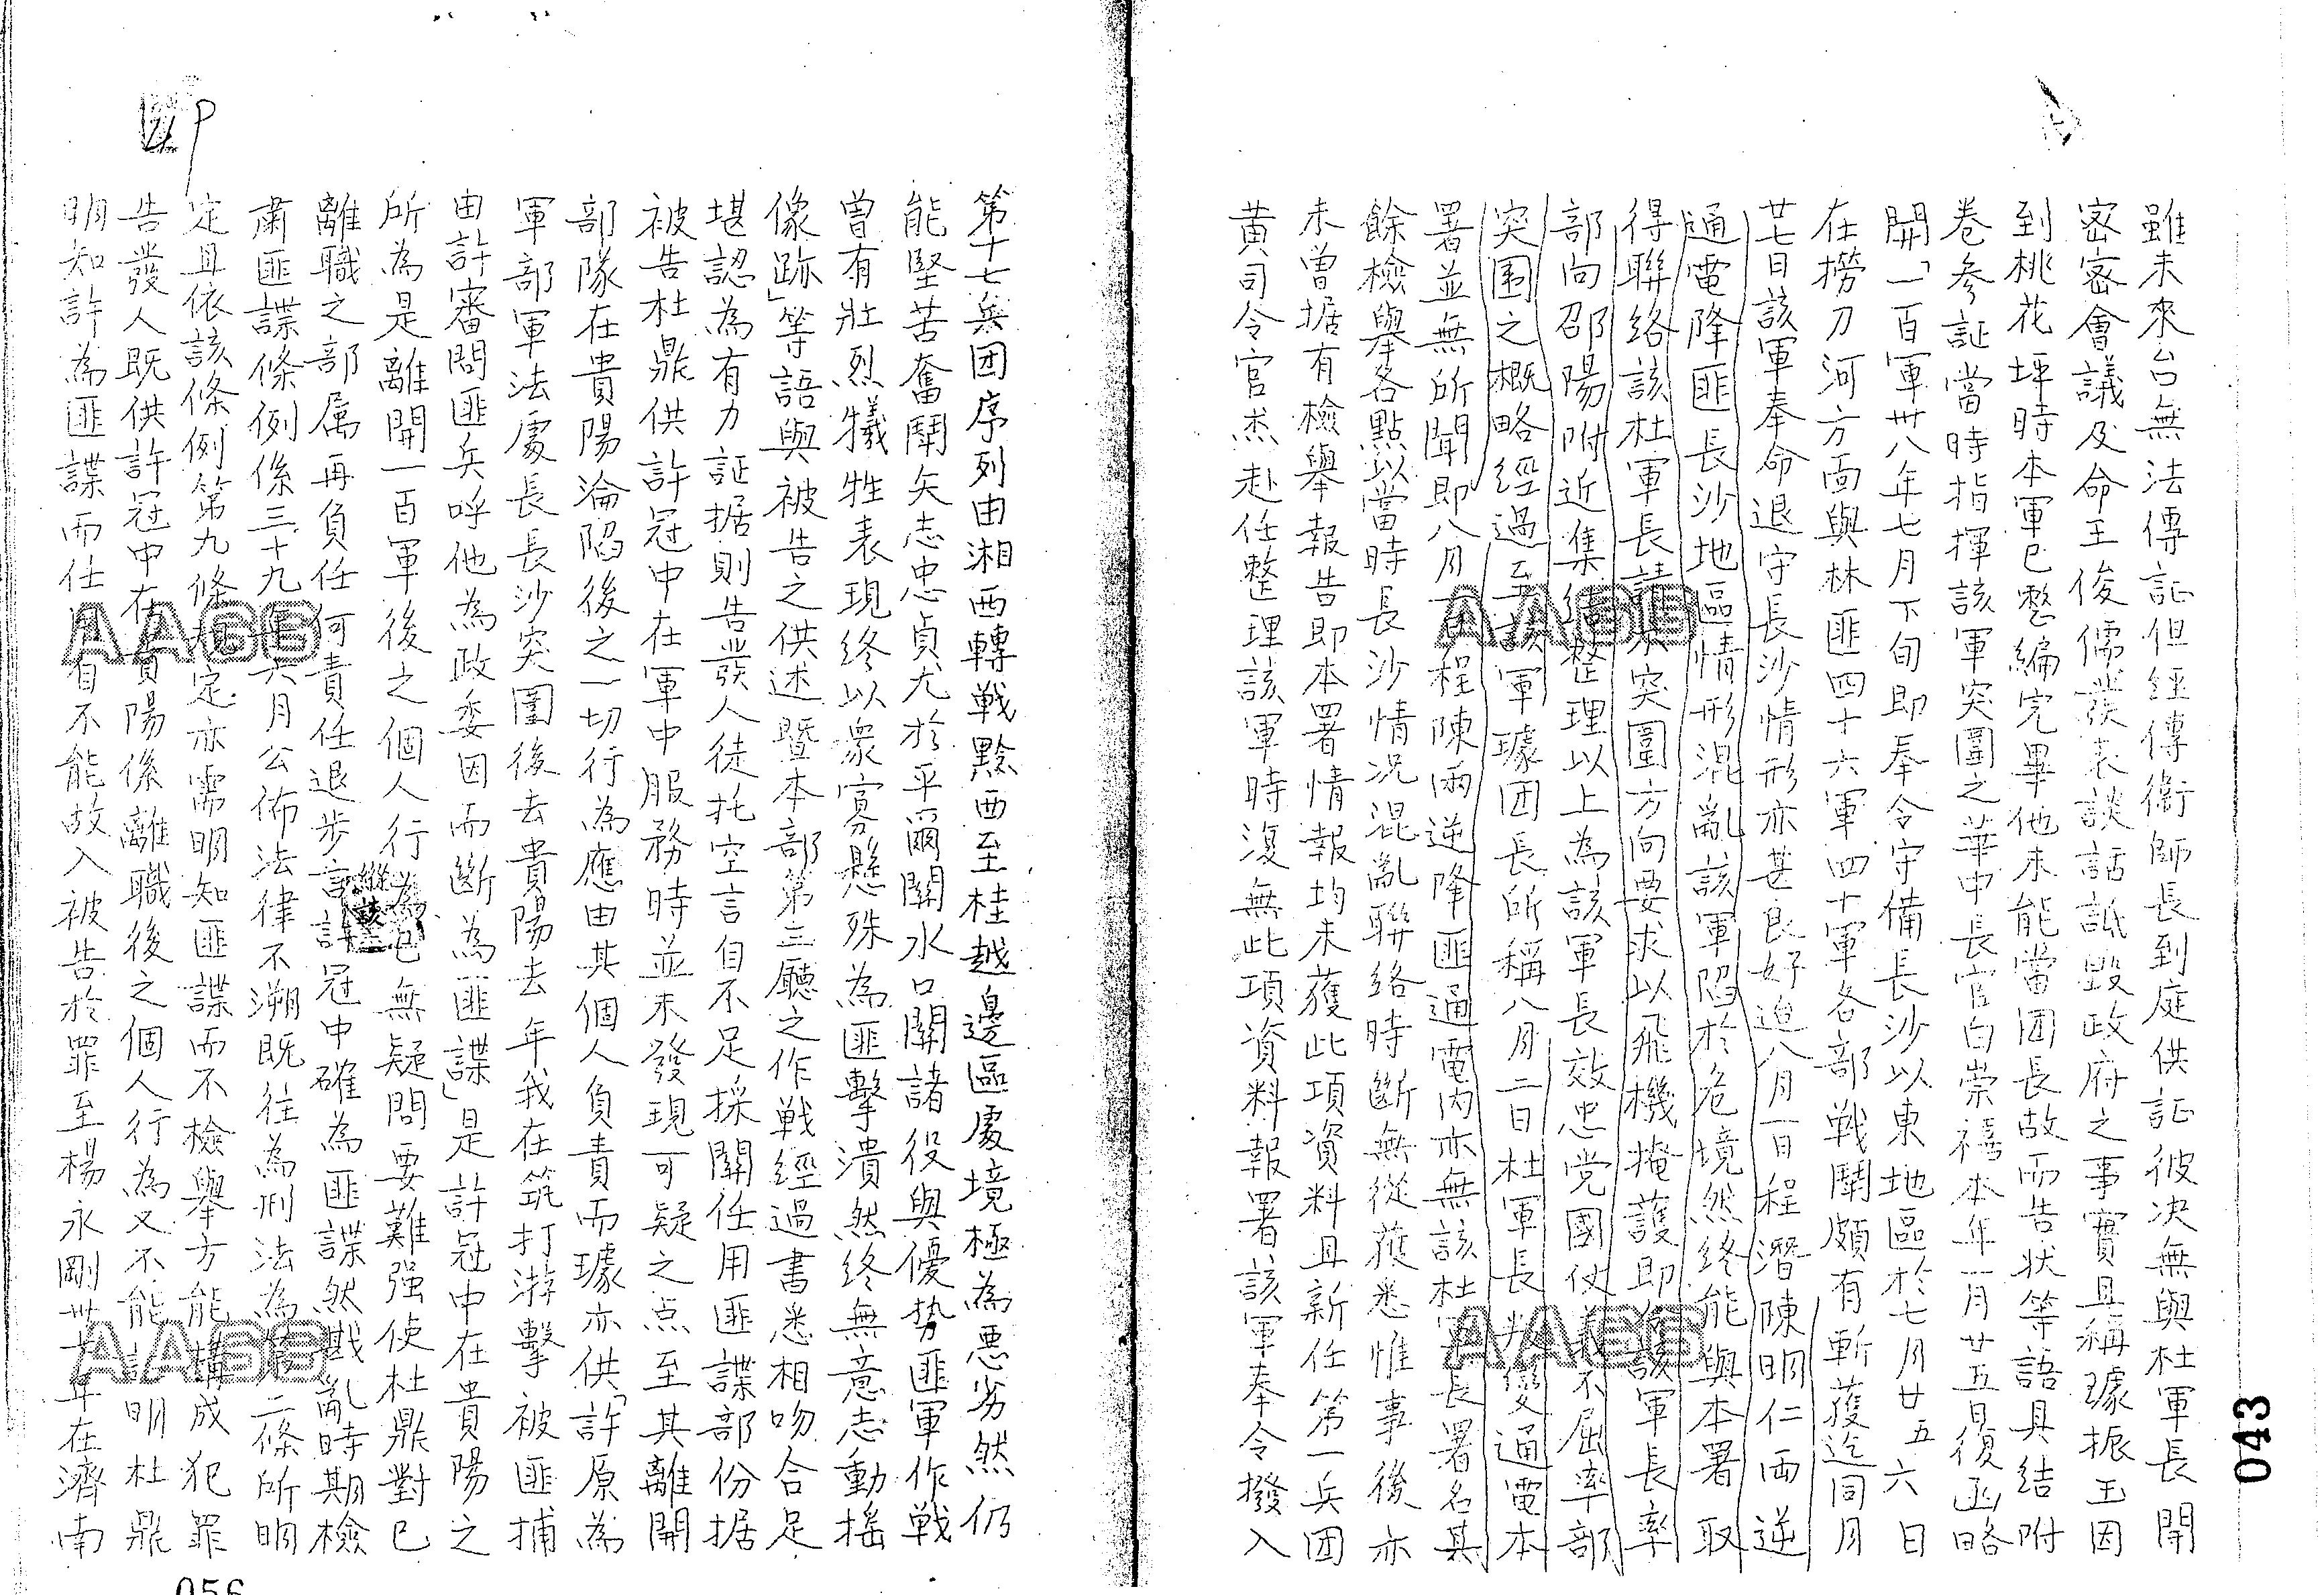 雖未來台無法傳証但經傳衛師長到庭供証彼決無與杜軍長開
密密會議及命王俊儒發表談話詆毀政府之事實且稱據振玉因
到桃花坪時本軍已整編完畢他未能當团長故而告状等語具结附
卷参証當時指揮該軍突圍之華中長官白崇禧本年一月廿五日復函略
開「一百軍卅八年七月下旬即奉令守備長沙以東地區於七月廿五六日
在撈刀河方面與林匪四十六軍四十軍各部戦鬪頗有斬獲迄同月
廿七日該軍奉命退守長沙情形亦甚良好迨八月一日程潛陳明仁両逆
通電降匪長沙地區情形混亂該軍陷於危境然終能與本署取
得聯络該杜軍長請示突圍方向要求以飛機掩護即
該軍長率
部向邵陽附近集结整理以上為該軍長效忠党國仗義不屈率部
突围之概略經過至該軍據团長所稱八月二日杜軍長叛變通電本
署並無所聞即八月一日程陳兩逆降匪通電內亦無該杜軍長署名其
餘檢舉各點以當時長沙情况混亂聯络時斷無從獲悉惟事後亦
未曾据有檢舉報告即本署情報均未獲此項資料且新任第一兵团
黃司令官杰赴任整理該軍時復無此項資料報署該軍奉令撥入
第十七兵团序列由湘西轉戦黔西至桂越邊區處境極為惡劣然仍
能堅苦奮鬪矢志忠貞尤於平爾關水口關諸役與優势匪軍作戦
曾有壯烈犧牲表現終以衆寡懸殊為匪擊潰然終無意志動摇
像跡」等語與被告之供述暨本部第三廳之作戦經過書悉相吻合足
堪認為有力証据則告發人徒托空言自不足採關任用匪諜部份据
被告杜鼎供許冠中在軍中服務時並未發現可疑之点至其離開
部隊在貴陽淪陷後之一切行為應由其個人負責而據亦供「許原為
軍部軍法處長長沙突圍後去貴陽去年我在筑打游擊被匪捕
由許審問匪兵呼他為政委因而斷為匪諜」是許冠中在貴陽之
所為是離開一百軍後之個人行為已無疑問要難强使杜鼎對已
離職之部属再負任何責任退步言許冠中確為匪諜然戡亂時期檢
肅匪諜條例係三十九年六月公佈法律不溯既往為刑法為第二條所明
定且依該條例第九條規定亦需明知匪諜而不檢舉方能構成犯罪
告發人既供許冠中在貴陽係離職後之個人行為又不能証明杜鼎
明知許為匪諜而任用自不能故入被告於罪至楊永剛卅七年在濟南
043
056